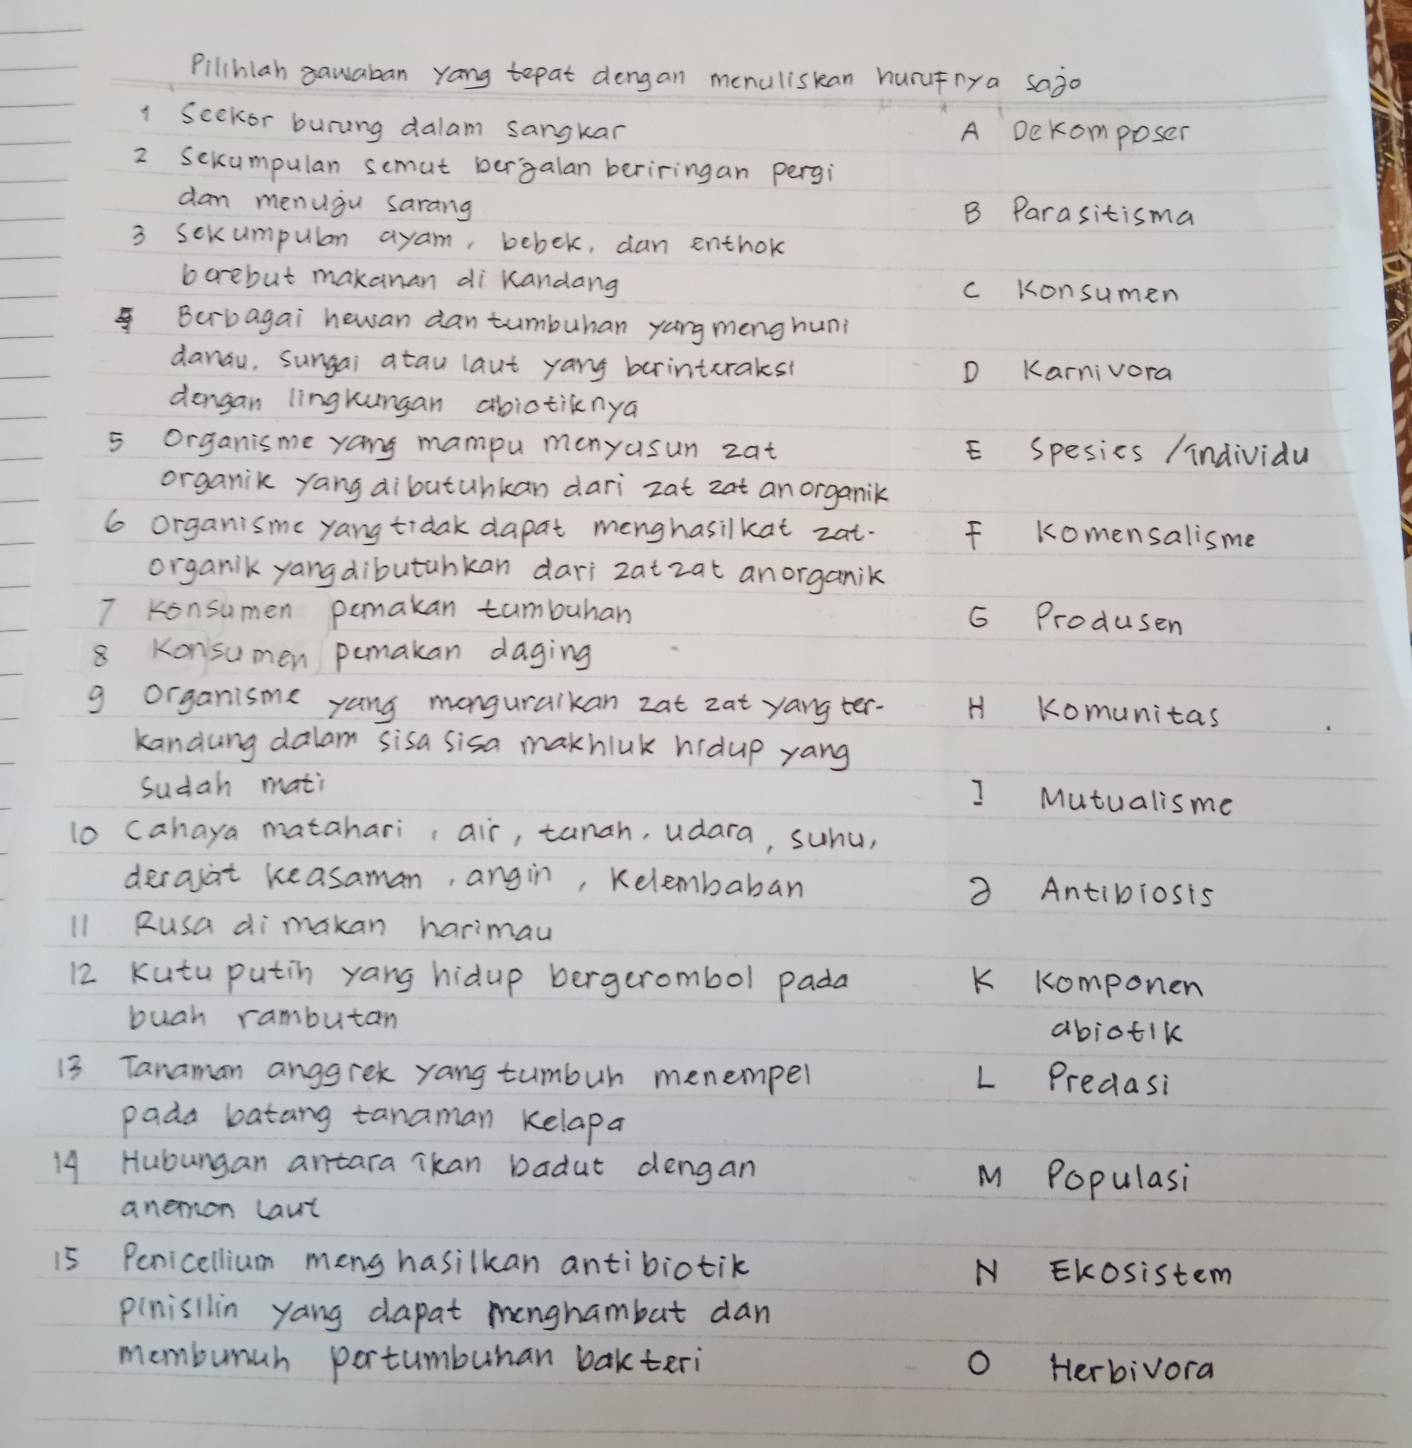 Pilihlah jawaban yang tepat dengan menuliskan hurufnya sajo
1 Seekor burung dalam sangkar
A Dekomposer
2 Sekumpulan semut berjalan beriringan pergi
dan menuju sarang
B Parasitisma
3 Sekumpulan ayam, bebek, dan enthok
berebut makanan di kandang
C Konsumen
4 Berbagai hewan dan tumbuhan yang menghuni
danau, sungai atau laut yang berinteraksi
D Karnivora
dengan lingkungan abiotiknya
5 Organisme yang mampu menyusun zat
E Spesies / individu
organik yang dibutuhkan dari zat zat anorganik
6 Organisme yang tidak dapat menghasilkat zat-
F Komensalisme
organik yang dibutuhkan dari zat zat anorganik
7 Konsumen pemakan tumbuhan
G Produsen
8 Konsumen pemakan daging
9 Organisme yang menguraikan zat zat yang ter-
H Komunitas
kandung dalam sisa sisa makhluk hidup yang
sudah mati
I Mutualisme
10 Cahaya matahari, air, tanah, udara, suhu,
derajat keasaman, angin, kelembaban
J Antibiosis
11 Rusa di makan harimau
12 Kutu putih yang hidup bergerombol pada
K Komponen
buah rambutan
abiotik
13 Tanaman anggrek yang tumbuh menempel
L Predasi
pada batang tanaman kelapa
14 Hubungan antara ikan badut dengan
M Populasi
anemon laut
15 Penicellium menghasilkan antibiotik
N Ekosistem
pinisilin yang dapat menghambat dan
membunuh pertumbuhan bakteri
O Herbivora